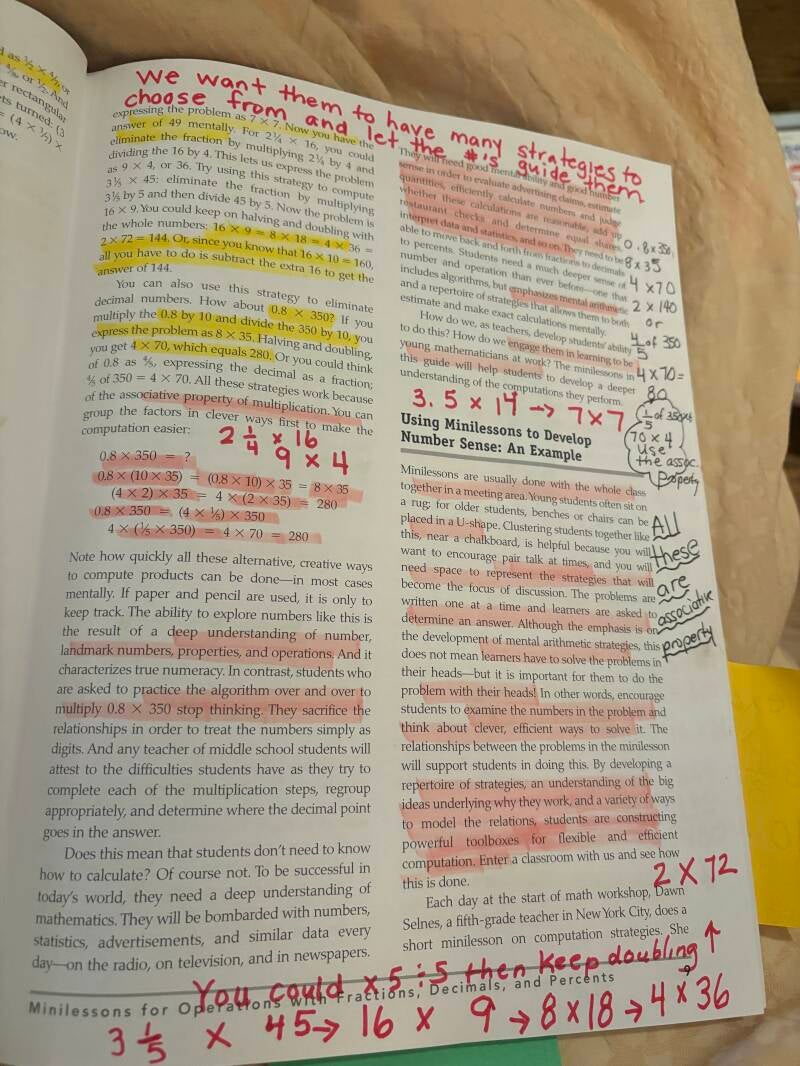 We want them to have many strategies to
choose from and let the #'s guide them
d as ½ × ⁴⁄₅, or
or ½. And
er rectangular
ts turned: (3
= (4 × ⅕) ×
ow.
expressing the problem as 7 × 7. Now you have the
answer of 49 mentally. For 2¼ × 16, you could
eliminate the fraction by multiplying 2¼ by 4 and
dividing the 16 by 4. This lets us express the problem
as 9 × 4, or 36. Try using this strategy to compute
3⅕ × 45: eliminate the fraction by multiplying
3⅕ by 5 and then divide 45 by 5. Now the problem is
16 × 9. You could keep on halving and doubling with
the whole numbers: 16 × 9 = 8 × 18 = 4 × 36 =
2 × 72 = 144. Or, since you know that 16 × 10 = 160,
all you have to do is subtract the extra 16 to get the
answer of 144.
You can also use this strategy to eliminate
decimal numbers. How about 0.8 × 350? If you
multiply the 0.8 by 10 and divide the 350 by 10, you
express the problem as 8 × 35. Halving and doubling,
you get 4 × 70, which equals 280. Or you could think
of 0.8 as ⅘, expressing the decimal as a fraction;
⅘ of 350 = 4 × 70. All these strategies work because
of the associative property of multiplication. You can
group the factors in clever ways first to make the
computation easier:
2 ¼ × 16
9 × 4
0.8 × 350 = ?
0.8 × (10 × 35) = (0.8 × 10) × 35 = 8 × 35
(4 × 2) × 35 = 4 × (2 × 35) = 280
0.8 × 350 = (4 × ⅕) × 350
4 × (⅕ × 350) = 4 × 70 = 280
Note how quickly all these alternative, creative ways
to compute products can be done—in most cases
mentally. If paper and pencil are used, it is only to
keep track. The ability to explore numbers like this is
the result of a deep understanding of number,
landmark numbers, properties, and operations. And it
characterizes true numeracy. In contrast, students who
are asked to practice the algorithm over and over to
multiply 0.8 × 350 stop thinking. They sacrifice the
relationships in order to treat the numbers simply as
digits. And any teacher of middle school students will
attest to the difficulties students have as they try to
complete each of the multiplication steps, regroup
appropriately, and determine where the decimal point
goes in the answer.
Does this mean that students don't need to know
how to calculate? Of course not. To be successful in
today's world, they need a deep understanding of
mathematics. They will be bombarded with numbers,
statistics, advertisements, and similar data every
day—on the radio, on television, and in newspapers.
They will need good mental ability and good number
sense in order to evaluate advertising claims, estimate
quantities, efficiently calculate numbers and judge
whether these calculations are reasonable, add up
restaurant checks and determine equal shares,
interpret data and statistics, and so on. They need to be
able to move back and forth from fractions to decimals
to percents. Students need a much deeper sense of
number and operation than ever before—one that
includes algorithms, but emphasizes mental arithmetic
and a repertoire of strategies that allows them to both
estimate and make exact calculations mentally.
How do we, as teachers, develop students' ability
to do this? How do we engage them in learning to be
young mathematicians at work? The minilessons in
this guide will help students to develop a deeper
understanding of the computations they perform.
0.8 x 350
8 x 35
4 x 70
2 x 140
or
4/5 of 350
4 x 70 =
80
1/5 of 350x4
70 x 4
Use
the assoc.
property
3.5 × 14 → 7 × 7
Using Minilessons to Develop
Number Sense: An Example
Minilessons are usually done with the whole class
together in a meeting area. Young students often sit on
a rug; for older students, benches or chairs can be
placed in a U-shape. Clustering students together like
this, near a chalkboard, is helpful because you will
want to encourage pair talk at times, and you will
need space to represent the strategies that will
become the focus of discussion. The problems are
written one at a time and learners are asked to
determine an answer. Although the emphasis is on
the development of mental arithmetic strategies, this
does not mean learners have to solve the problems in
their heads—but it is important for them to do the
problem with their heads! In other words, encourage
students to examine the numbers in the problem and
think about clever, efficient ways to solve it. The
relationships between the problems in the minilesson
will support students in doing this. By developing a
repertoire of strategies, an understanding of the big
ideas underlying why they work, and a variety of ways
to model the relations, students are constructing
powerful toolboxes for flexible and efficient
computation. Enter a classroom with us and see how
this is done.
Each day at the start of math workshop, Dawn
Selnes, a fifth-grade teacher in New York City, does a
short minilesson on computation strategies. She
All
these
are
associative
property
2 × 72
You could x5 ÷5 then keep doubling ↑
Minilessons for Operations with Fractions, Decimals, and Percents
3 ⅕ × 45 → 16 × 9 → 8 × 18 → 4 × 36